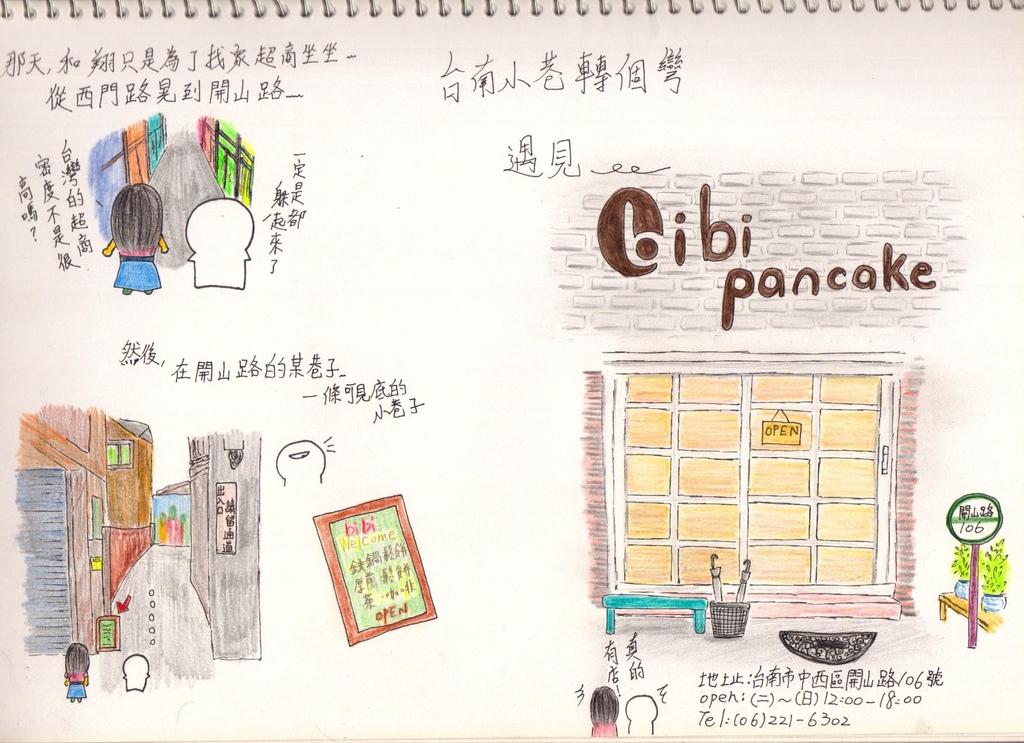 那天，和翔只是為了找家超商坐坐…
從西門路晃到開山路…
台灣的超商
密度不是很
高嗎？
一定是都
躲起來了
然後，在開山路的某巷子…
一條可見底的
小巷子
出入口
請留通道
bibi
Welcome
鑄鐵鍋鬆餅
厚煎鬆餅
茶．咖啡
OPEN
台南小巷轉個彎
遇見
Bibi
pancake
OPEN
開山路
106
真的
有店！
地址：台南市中西區開山路106號
open：(二)～(日) 12:00-18:00
Tel：(06)221-6302